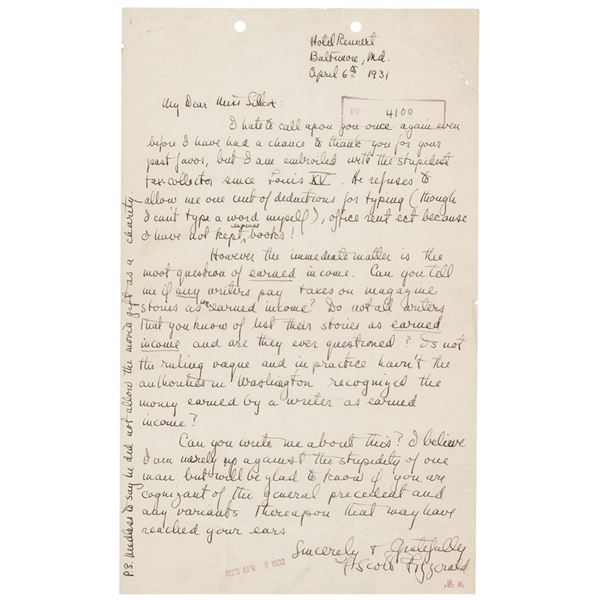 Hotel Rennert
Baltimore, Md.
April 6th 1931
My Dear Miss Sillcox:
4100
I hate to call upon you once again even
before I have had a chance to thank you for your
past favor, but I am embroiled with the stupidest
tax-collector since Louis XV. He refuses to
allow me one cent of deductions for typing (though
I can't type a word myself), office rent ect because
I have not kept expense books!
However the immediate matter is the
moot question of earned income. Can you tell
me if any writers pay taxes on magazine
stories as un-earned income? Do not all writers
that you know of list their stories as earned
income and are they ever questioned? Is not
the ruling vague and in practice havn't the
authorities in Washington recognized the
money earned by a writer as earned
income?
Can you write me about this? I believe
I am merely up against the stupidity of one
man but will be glad to know if you are
cognizant of the general precedent and
any variants thereupon that may have
reached your ears.
Sincerely & Gratefully
F Scott Fitzgerald
REC'D APR 9 1932
P.S. Needless to say he did not allow the movie gift as a charity.